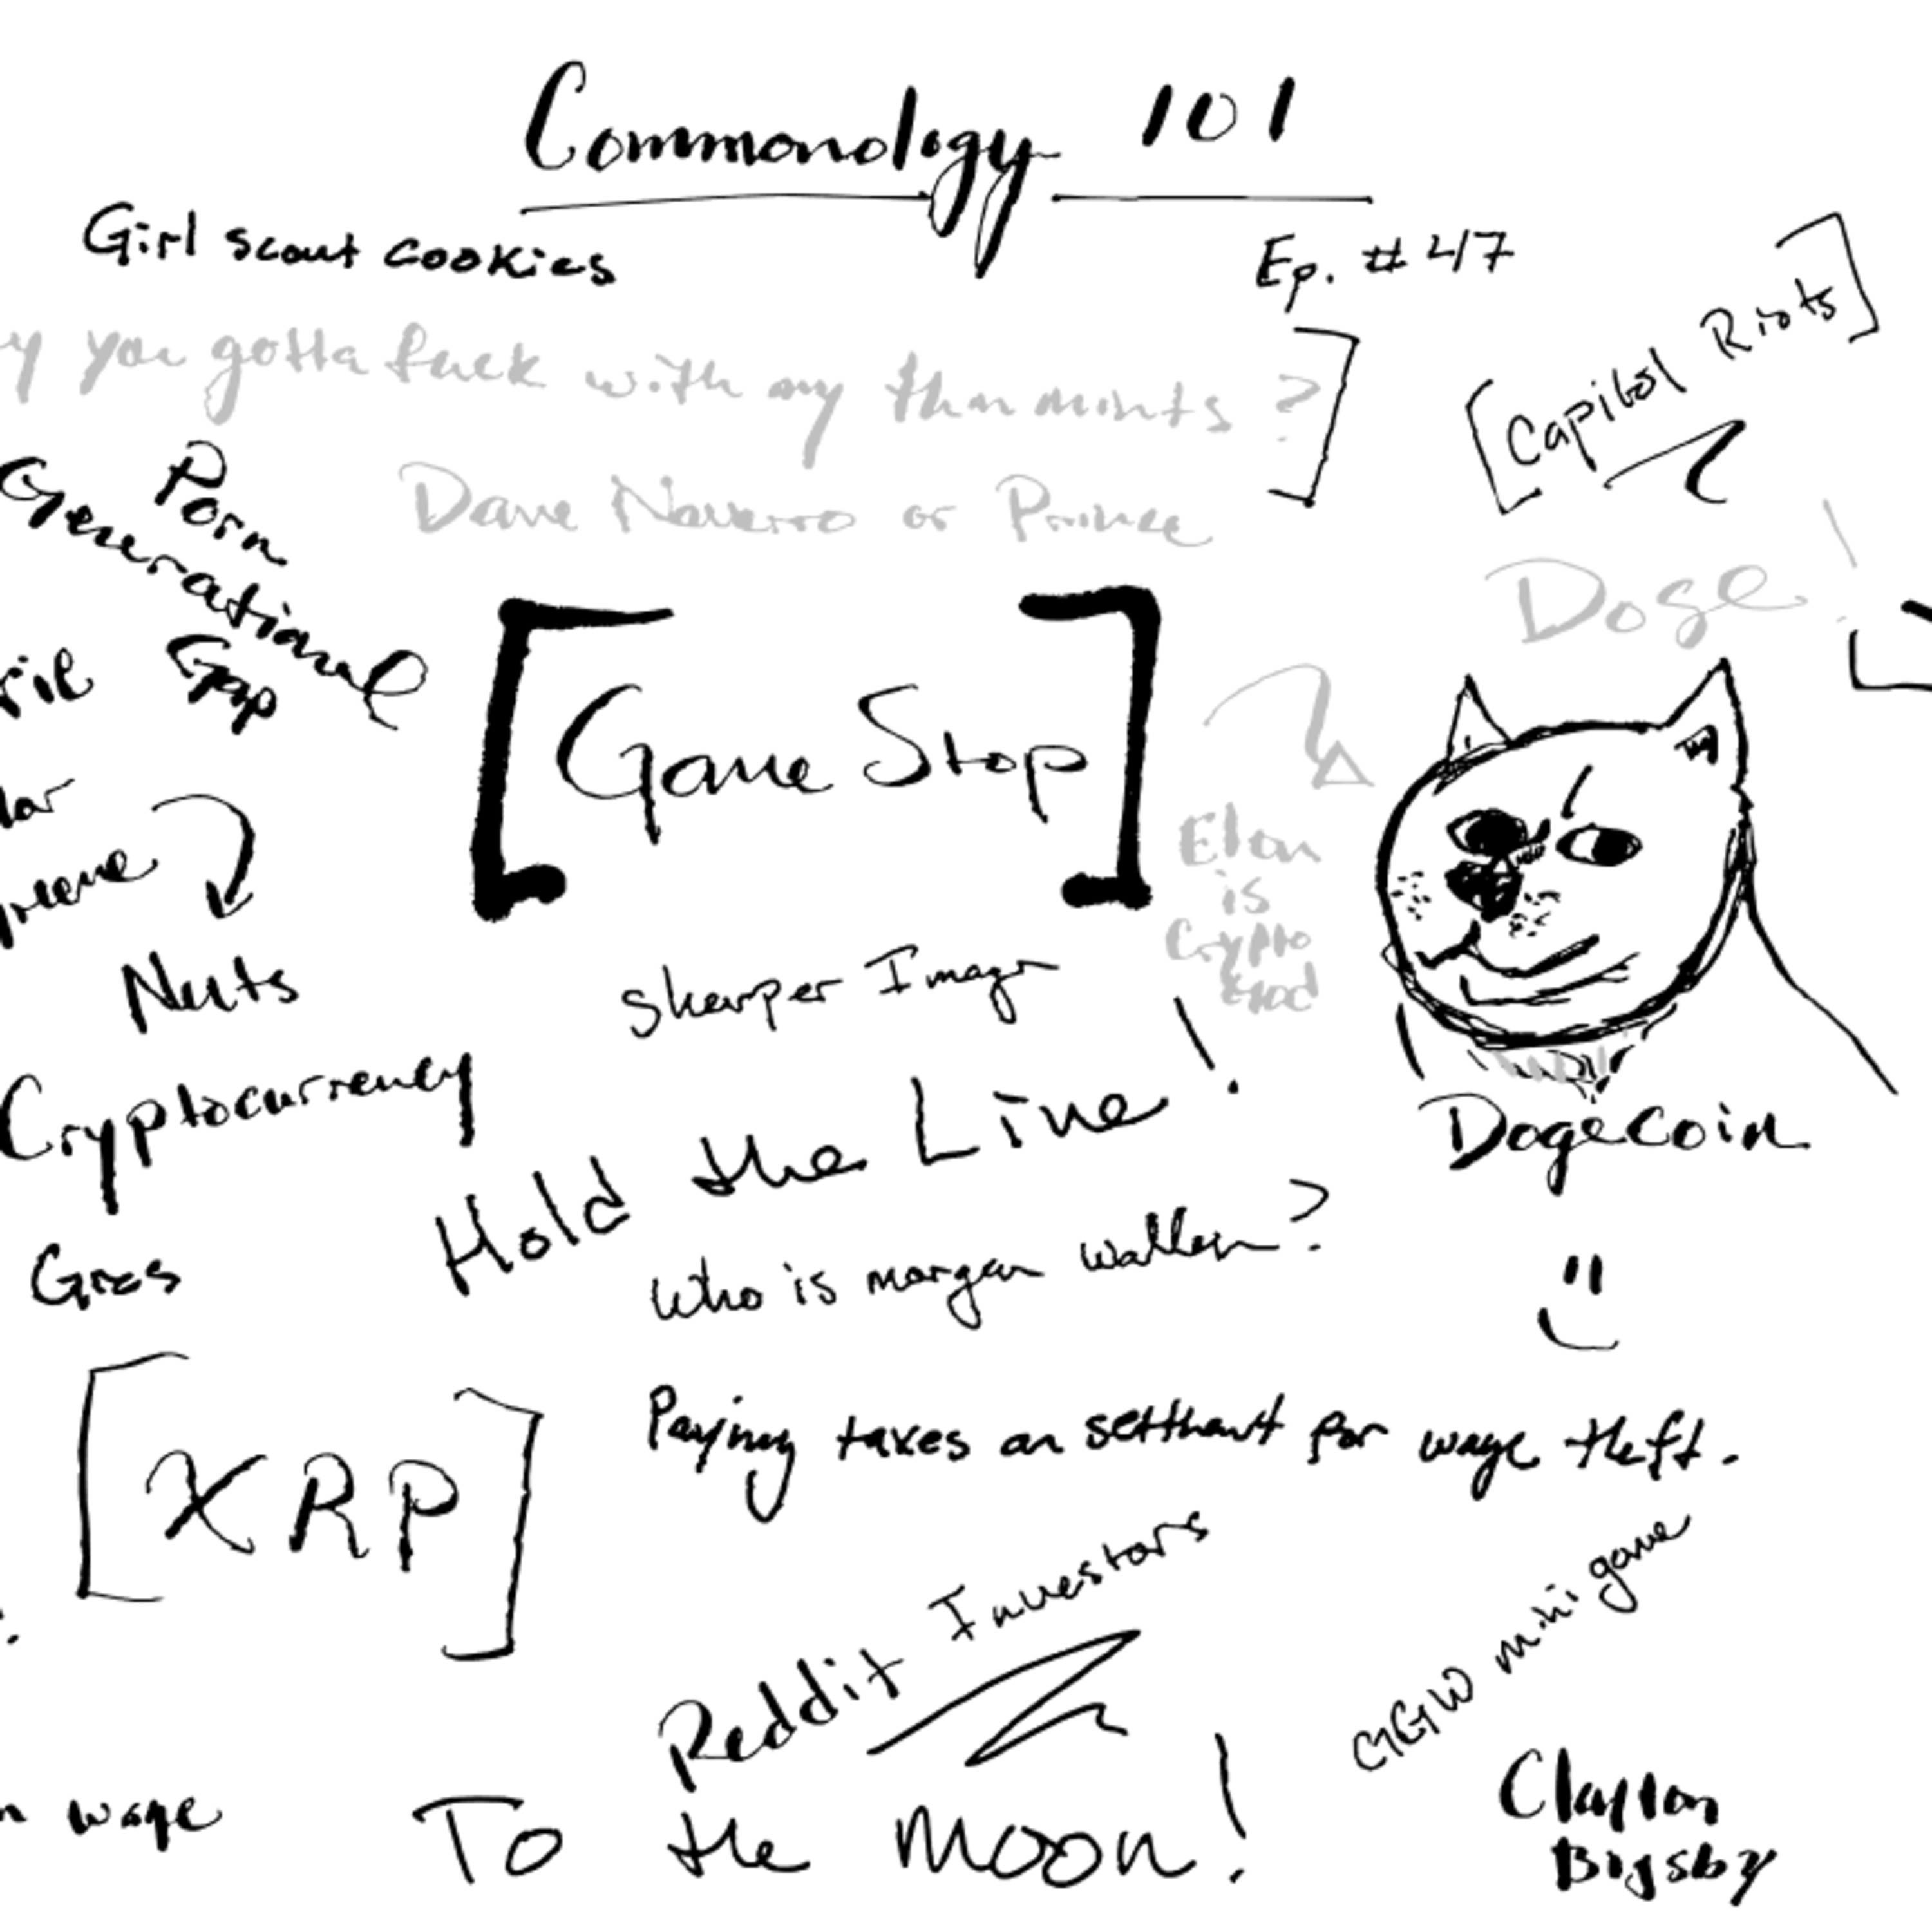 Commonology 101
Girl scout cookies
Ep. #47
y you gotta fuck with my thin mints?
[Capitol Riots]
Porn
Generational
Gap
Dave Navarro or Prince
Doge!
[Game Stop]
Elon
is
Crypto
God
Nuts
Sharper Image
Cryptocurrency
Hold the Line!
Dogecoin
Who is morgan wallen?
[XRP]
Paying taxes on settlement for wage theft.
Reddit Investors
GGW mini game
wage
To the moon!
Clayton
Bigsby